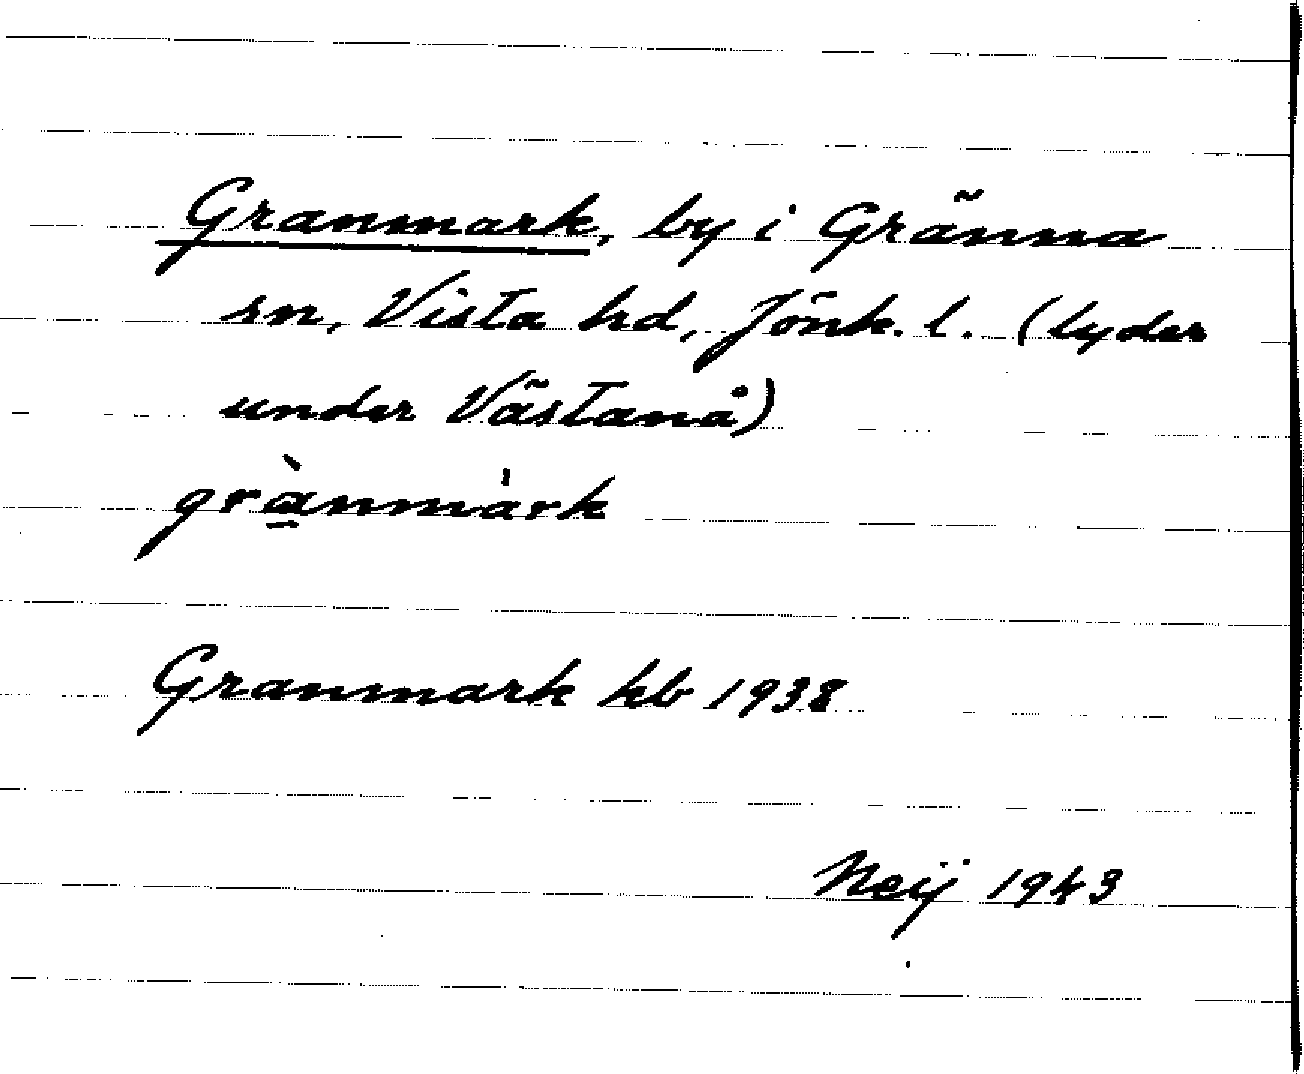 Granmark, by i Gränna
sn, Vista hd, Jönk. l. (lyder
under Västanå)
grà̱nmàrk
Granmark kb 1938
Neij 1943